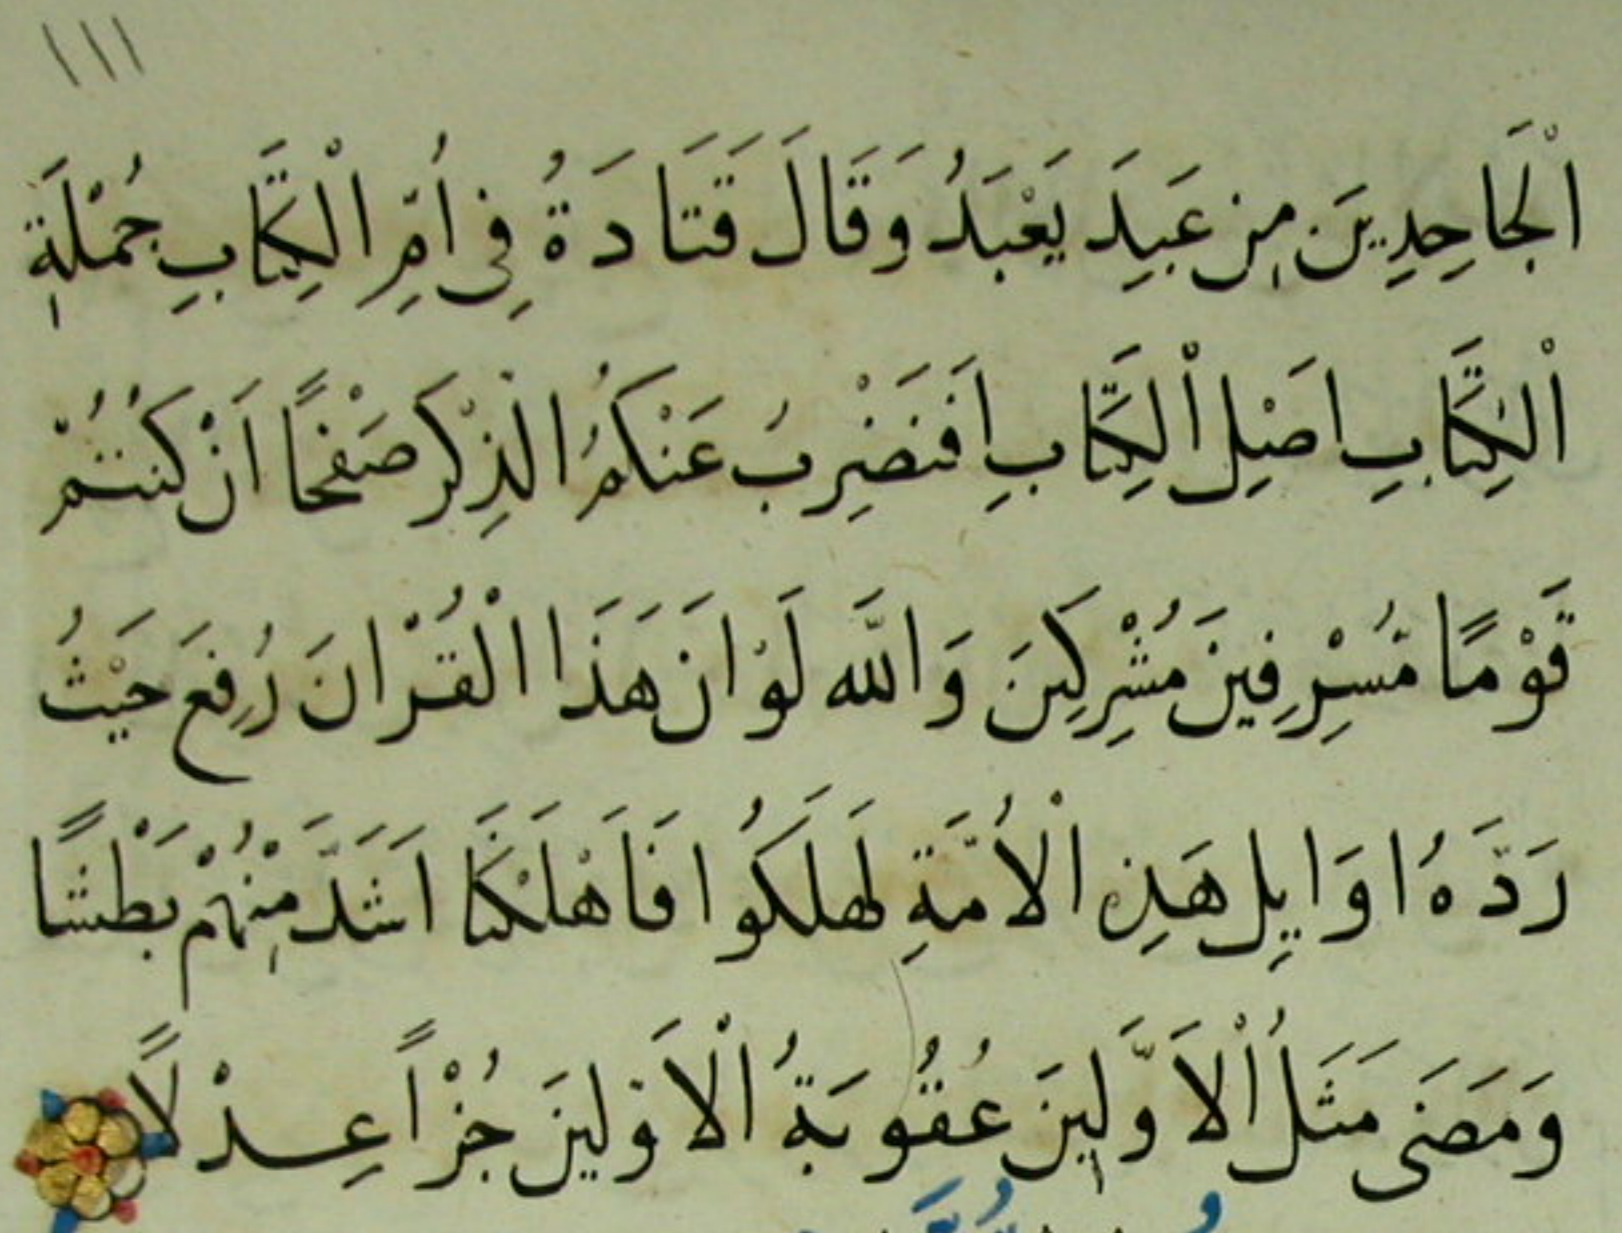 ١١١
الْجَاحِدِينَ مِن عَبِدَ يَعْبَدُ وَقَالَ قَتَادَةُ فِي أُمِّ الْكِتَابِ جُمْلَةِ
الْكِتَابِ اَصْلِ الْكِتَابِ اَفَنَضْرِبُ عَنْكُمُ الذِّكْرَ صَفْحًا اَنْ كُنتُمْ
قَوْمًا مُسْرِفِينَ مُشْرِكِينَ وَاللَّه لَوْ انَ هَذَا الْقُرْانَ رُفِعَ حَيْثُ
رَدَّهُ اوَايِلِ هَذِهِ الْاُمَّةِ لَهَلَكُوا فَاَهْلَكْنَا اَشَدَّ مِنْهُمْ بَطْشًا
وَمَضَى مَثَلُ الْاَوَّلِينَ عُقُوبَةُ الْاَوَلِينَ جُزْاً عِدْلًا